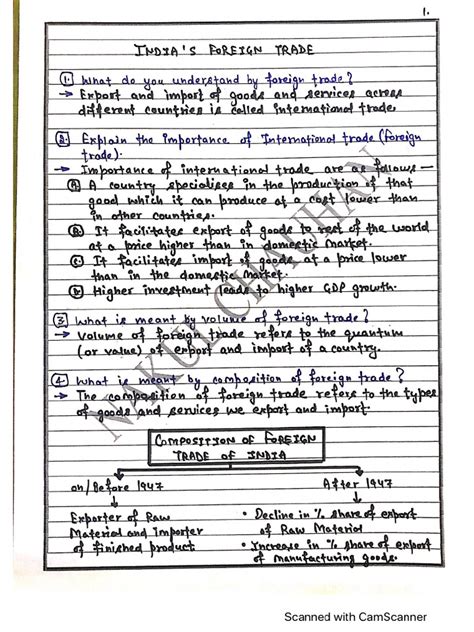 1.
INDIA'S FOREIGN TRADE
1. What do you understand by foreign trade?
→ Export and import of goods and services across
different countries is called international trade.
2. Explain the importance of International trade (foreign
trade).
→ Importance of international trade are as follows —
A. A country specialises in the production of that
good which it can produce at a cost lower than
in other countries.
B. It facilitates export of goods to rest of the world
at a price higher than in domestic market.
C. It facilitates import of goods at a price lower
than in the domestic market.
D. Higher investment leads to higher GDP growth.
3. What is meant by volume of foreign trade?
→ Volume of foreign trade refers to the quantum
(or value) of export and import of a country.
4. What is meant by composition of foreign trade?
→ The composition of foreign trade refers to the types
of goods and services we export and import.
COMPOSITION OF FOREIGN
TRADE OF INDIA
on/Before 1947
After 1947
Exporter of Raw
Material and Importer
of finished product
• Decline in % share of export
of Raw Material
• Increase in % share of export
of manufacturing goods.
NAKUL CHAUHAN
Scanned with CamScanner